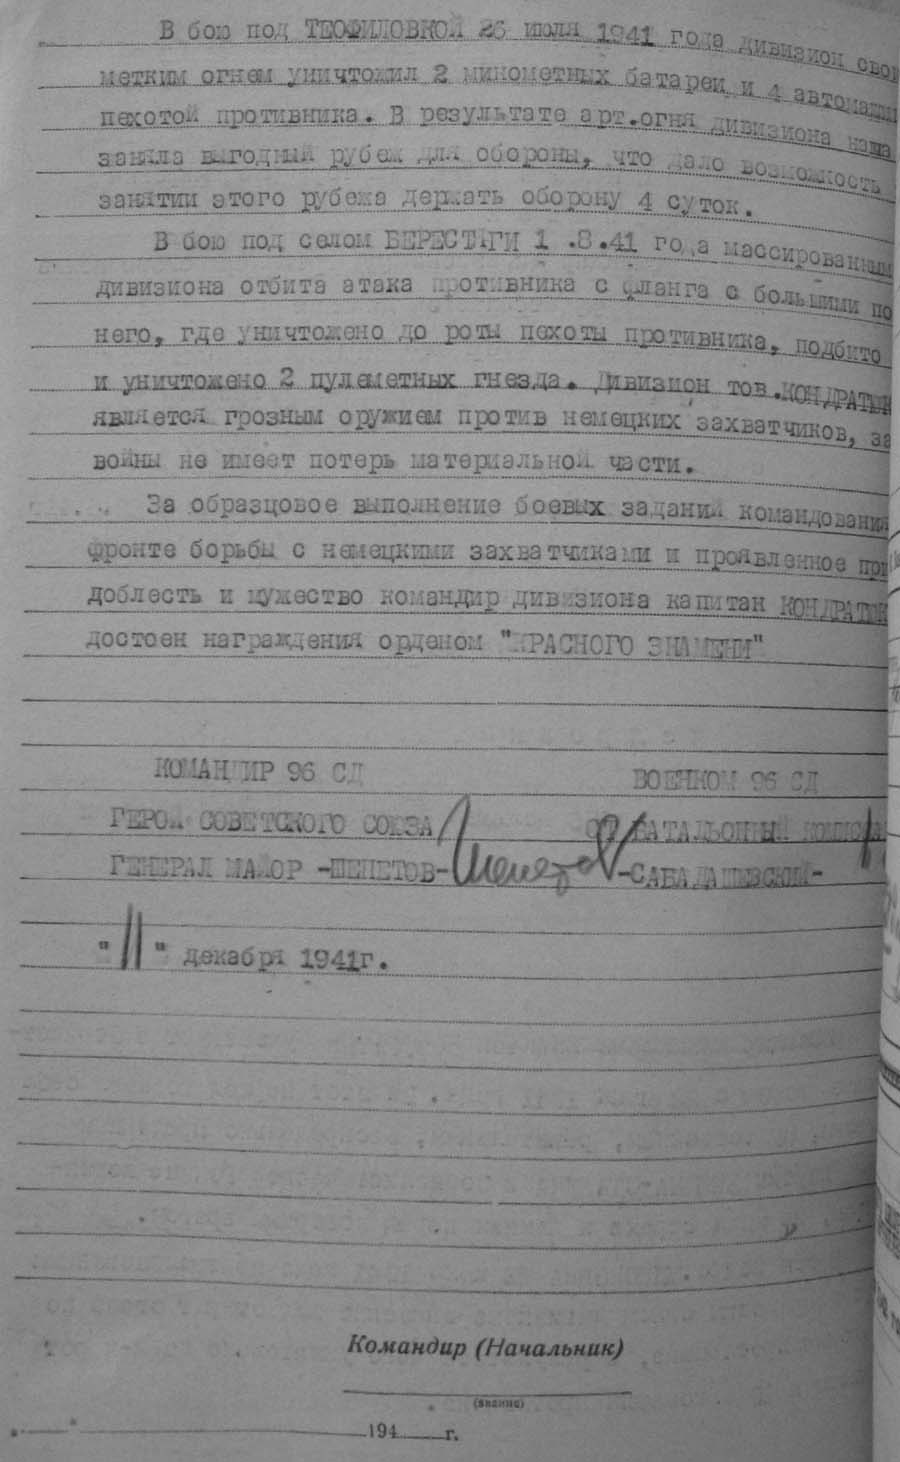 В бою под ТЕОФИЛОВКОЙ 26 июля 1941 года дивизион свои
метким огнем уничтожил 2 минометных батареи и 4 автомашин
пехотой противника. В результате арт.огня дивизиона наша
заняла выгодный рубеж для обороны, что дало возможность
занятии этого рубежа держать оборону 4 суток.
В бою под селом БЕРЕСТЯГИ 1 .8.41 года массированным
дивизиона отбита атака противника с фланга с большими по
него, где уничтожено до роты пехоты противника, подбито
и уничтожено 2 пулеметных гнезда. Дивизион тов.КОНДРАТЮК
является грозным оружием против немецких захватчиков, за
войны не имеет потерь материальной части.
За образцовое выполнение боевых заданий командования
фронте борьбы с немецкими захватчиками и проявленное при
доблесть и мужество командир дивизиона капитан КОНДРАТЮК
достоен награждения орденом "КРАСНОГО ЗНАМЕНИ"
КОМАНДИР 96 СД ВОЕНКОМ 96 СД
ГЕРОЙ СОВЕТСКОГО СОЮЗА СТ БАТАЛЬОННЫЙ КОМИССА
ГЕНЕРАЛ МАЙОР -ШЕПЕТОВ- Шепетов -САБАДАШЕВСКИЙ-
"11" декабря 1941г.
Командир (Начальник)
(звание)
194 г.